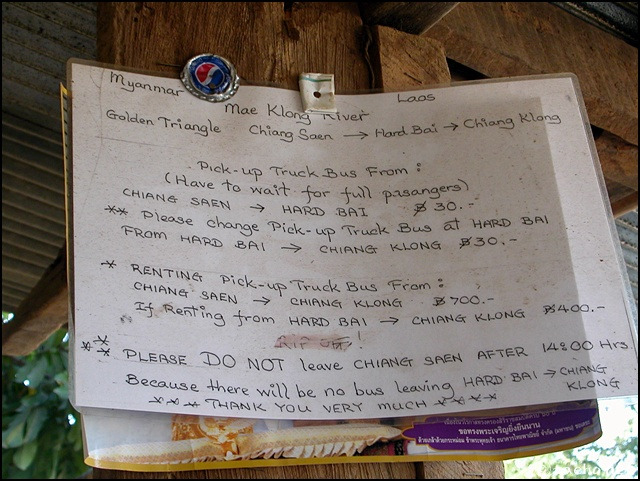 Myanmar Mae Klong River Laos
Golden Triangle Chiang Saen → Hard Bai → Chiang Klong
Pick-up Truck Bus From :
(Have to wait for full pasangers)
CHIANG SAEN → HARD BAI ฿ 30.-
** Please change Pick-up Truck Bus at HARD BAI
FROM HARD BAI → CHIANG KLONG ฿30.-
* RENTING Pick-up Truck Bus From :
CHIANG SAEN → CHIANG KLONG ฿700.-
If Renting from HARD BAI → CHIANG KLONG ฿400.-
RIP OFF!
*** PLEASE DO NOT leave CHIANG SAEN AFTER 14:00 Hrs
Because there will be no bus leaving HARD BAI → CHIANG KLONG
*** THANK YOU VERY MUCH ****
ขอทรงพระเจริญยิ่งยืนนาน